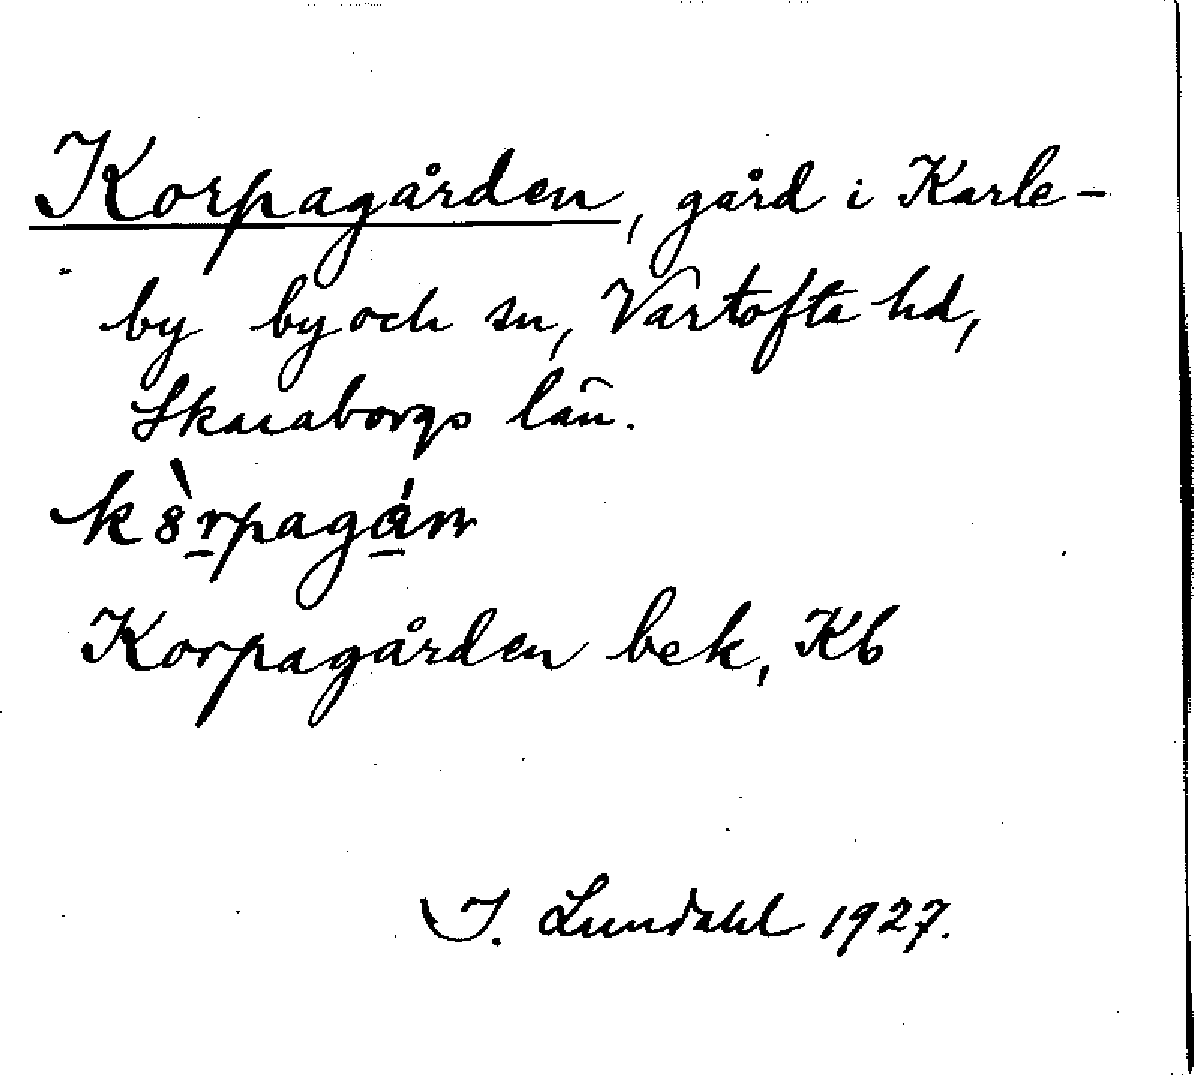 Korpagården, gård i Karle-
by by och sn, Vartofta hd,
Skaraborgs län.
Korpagården bek, Kb
I. Lundahl 1927.